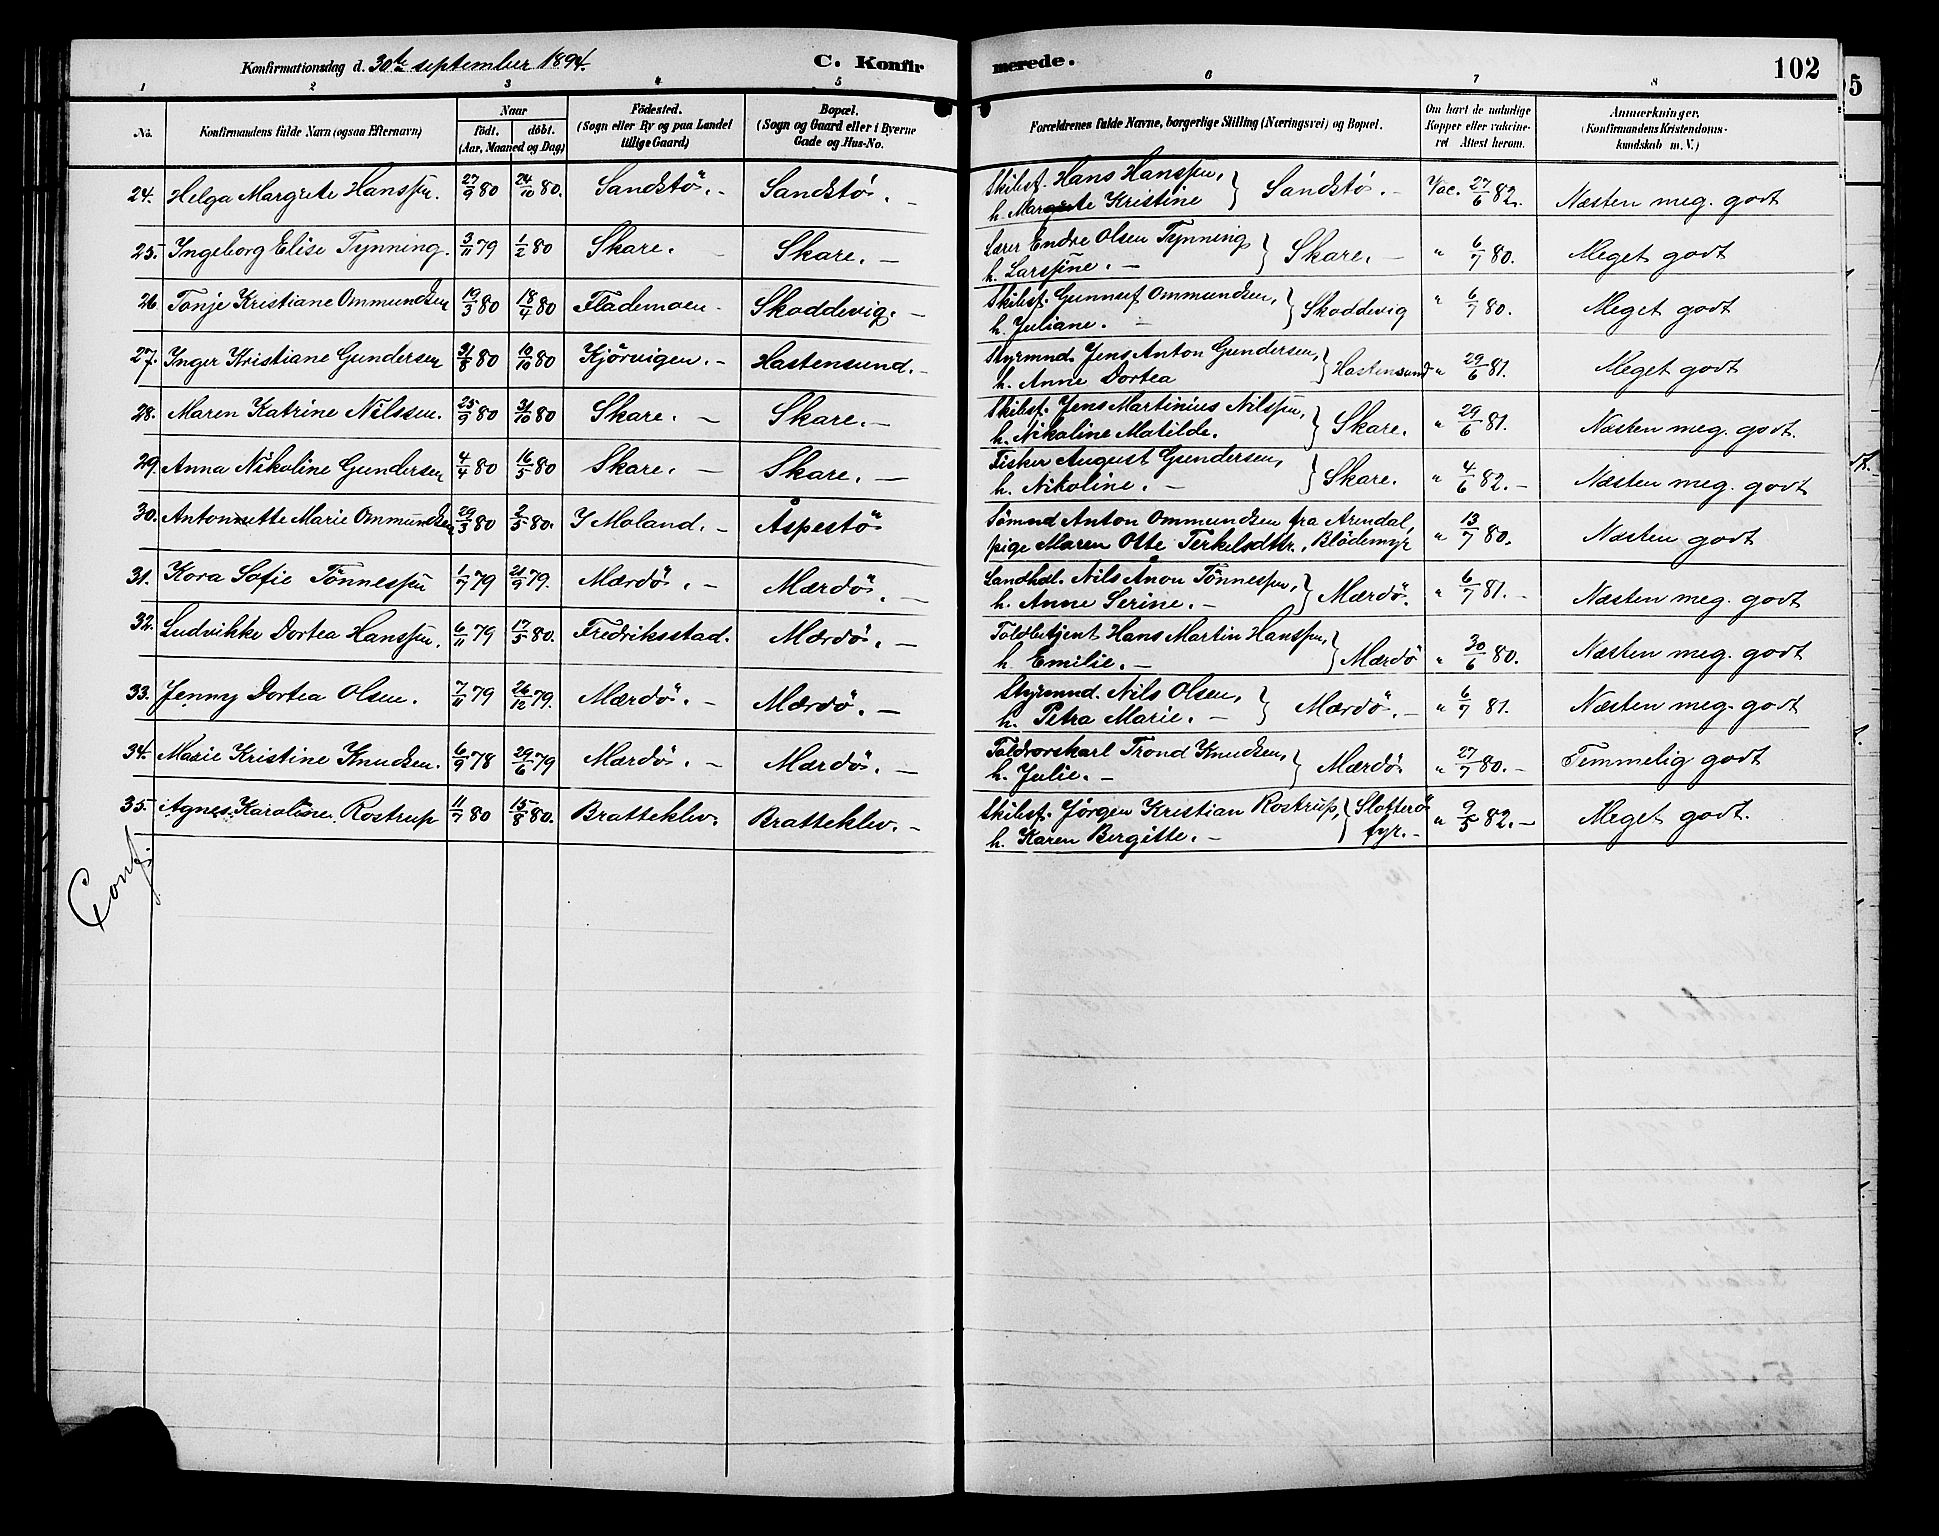 Konfirmationsdag d. 30te september 1894.
C. Konfir
merede.
102
1 2 3 4 5 6 7 8
No.
Konfirmandens fulde Navn (ogsaa Efternavn)
Naar
födt. döbt.
(Aar, Maaned og Dag)
Födested.
(Sogn eller By og paa Landet
tillige Gaard)
Bopæl.
(Sogn og Gaard eller i Byerne
Gade og Hus-No.
Forældrenes fulde Navne, borgerlige Stilling (Næringsvei) og Bopæl.
Om havt de naturlige
Kopper eller vakcine-
ret Attest herom.
Anmerkninger.
(Konfirmandens Kristendoms-
kundskab m. V.)
24. Helga Margrete Hanssen. 27/9 80 24/10 80. Sandstö. - Sandstö. - Skibsf. Hans Hanssen, h. Margrete Kristine } Sandstö. - Vac. 27/6 82. Næsten meg. godt
25. Ingeborg Elise Tynning. 3/11 79 1/2 80 Skare. - Skare. - Lærer Endre Olsen Tynning h. Larssine. - } Skare. - " 6/7 80. Meget godt
26. Tonje Kristiane Ommundsen 19/3 80 18/4 80 Flademoen - Skoddevig. - Skibsf. Gunnuf Ommundsen, h. Juliane. - } Skoddevig " 6/7 80. Meget godt
27. Inger Kristiane Gundersen 31/8 80 10/10 80 Kjörvigen. - Hastensund. - Styrmnd. Jens Anton Gundersen, h. Anne Dortea } Hastensund " 29/6 81. Meget godt
28. Maren Katrine Nilssen. 25/9 80 31/10 80 Skare. - Skare. - Skibsf. Jens Martinius Nilssen, h. Nikoline Matilde. } Skare. " 29/6 81. Næsten meg. godt.
29. Anna Nikoline Gundersen 4/4 80 16/5 80 Skare. - Skare. - Fisker August Gundersen, h. Nikoline. - } Skare. " 4/6 82. - Næsten meg. godt
30. Antonette Marie Ommundsen 29/3 80 2/5 80. I Moland. - Åspestö Sömnd Anton Ommundsen fra Arendal, pige Maren Otte Terkelsdttr., Blödemyr " 13/7 80. Næsten godt
31. Kora Sofie Tönnessen 1/7 79 21/9 79. Mærdö. - Mærdö. - Landhdl. Nils Ånon Tönnessen, h. Anne Serine. - } Mærdö. " 6/7 81. - Næsten meg. godt
32. Ludvikke Dortea Hanssen. 6/11 79 17/5 80. Fredriksstad. Mærdö. - Toldbetjent Hans Martin Hanssen, h. Emilie. - } Mærdö " 30/6 80. Næsten meg. godt
33. Jenny Dortea Olsen. 7/11 79 26/12 79. Mærdö. - Mærdö. - Styrmnd. Nils Olsen, h. Petra Marie. - } Mærdö. - " 6/7 81. Næsten meg. godt
34. Marie Kristine Knudsen. 6/9 78 29/6 79 Mærdö. - Mærdö. - Toldrorskarl Trond Knudsen, h. Julie. - } Mærdö " 27/7 80. - Temmelig godt
35. Agnes Karoline Rostrup 11/7 80 15/8 80. Bratteklev. Bratteklev. - Skibsf. Jörgen Kristian Rostrup, h. Karen Bergitte. - } Slotterö fyr. - " 9/5 82. - Meget godt.
Conf.